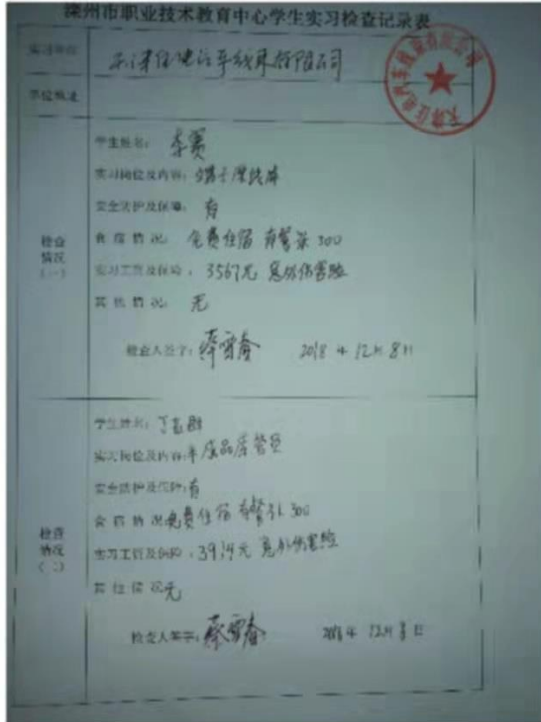 滦州市职业技术教育中心学生实习检查记录表
实习单位
天津住电汽车线束有限公司
学生姓名：李赛
实习岗位及内容：
安全防护及保障：有
检查情况（一）
食宿情况：免费住宿 有餐补300
实习工资及保险：3567元 意外伤害险
其他情况：无
检查人签字： 2018年12月8日
学生姓名：丁
实习岗位及内容：半成品库管员
安全防护及保障：有
检查情况（二）
食宿情况：免费住宿 有餐补300
实习工资及保险：3914元 意外伤害险
其他情况：无
检查人签字： 2018年12月8日